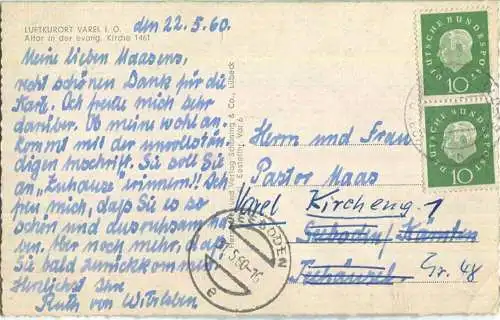 LUFTKURORT VAREL I. O.
Altar in der evang. Kirche 1461
den 22.5.60.
Meine lieben Maasens,
recht schönen Dank für die
Karte. Ich freute mich sehr
darüber. Ob meine wohl an-
kommt mit der unvollstän-
digen Anschrift. Sie soll Sie
an "Zuhause" erinnern!! Ich
freu mich, daß Sie es so
schön und ausruhsam ha-
ben. Aber noch mehr, daß
Sie bald zurückkommen.
Herzlichst Ihre
Ruth von Witzleben
und Verlag Schöning & Co., Lübeck
Bestellnr. Var 6
DEUTSCHE BUNDESPOST
10
DEUTSCHE BUNDESPOST
10
Herrn und Frau
Pastor Maas
Varel Kircheng. 1
Seeboden/Kärnten
Gr. 48
SEEBODEN
5.60-16
a